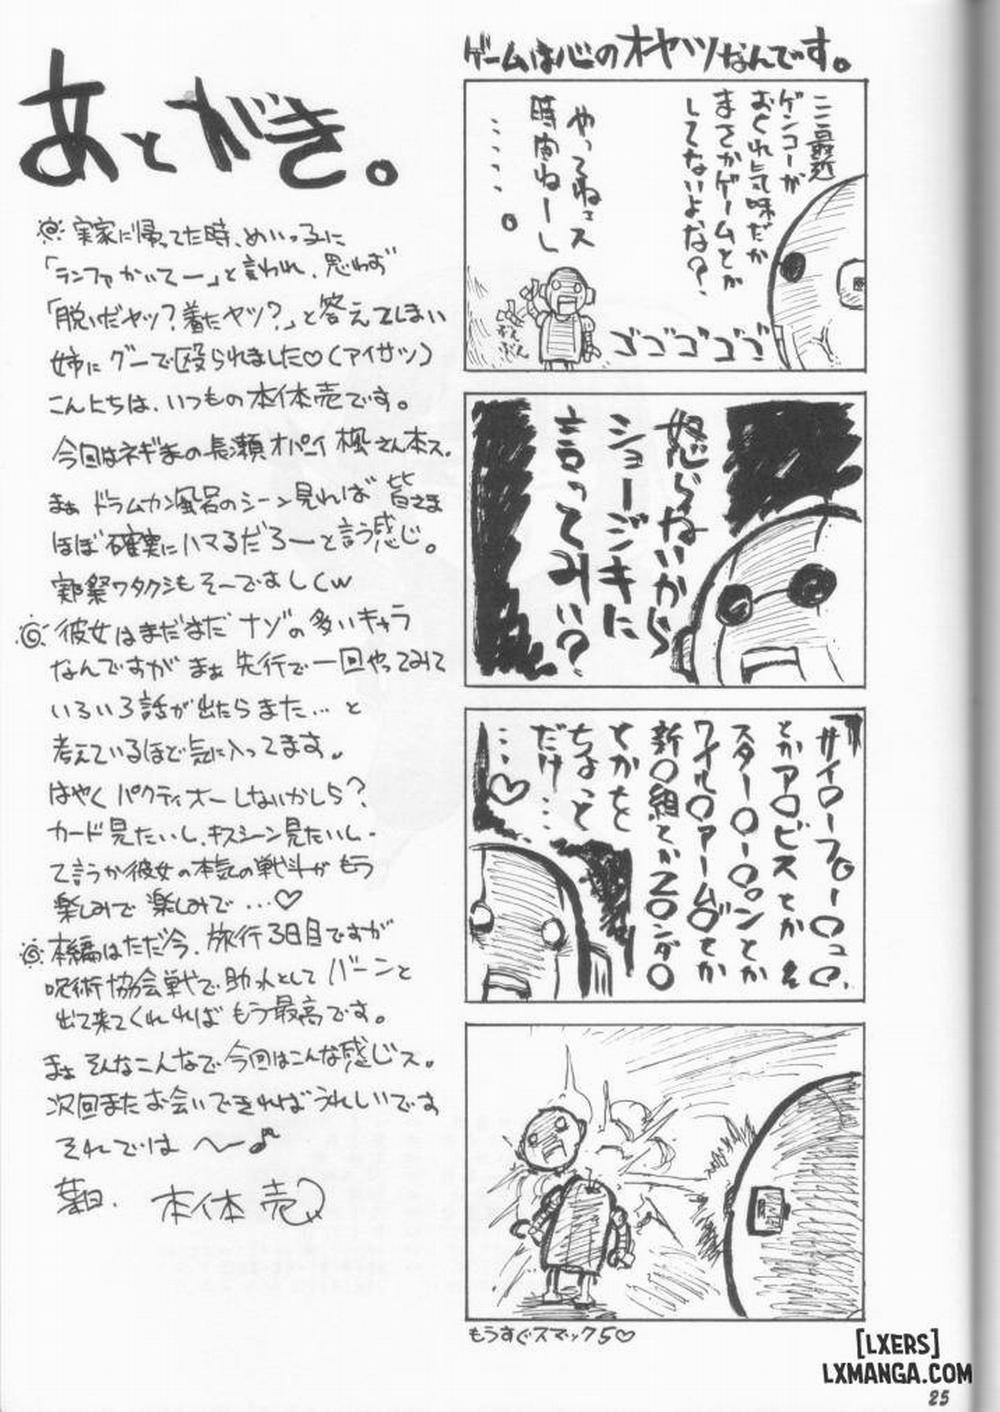 あとがき。
実家に帰ってた時、めいっ子に
「ランファかいてー」と言われ、思わず
「脱いだヤツ?着たヤツ?」と答えてしまい
姉にグーで殴られました♡(アイサツ)
こんにちは、いつもの本体売です。
今回はネギまの長瀬オパーイ楓さん本ス。
まぁドラムカン風呂のシーン見れば皆さま
ほぼ確実にハマるだろーと言う感じ。
実際ワタクシもそーでましたw
彼女はまだまだナゾの多いキャラ
なんですがまぁ先行で一回やってみて
いろいろ話が出たらまた…と
考えているほど気に入ってます。
はやくパクティオーしないかしら?
カード見たいし、キスシーン見たいし、
て言うか彼女の本気の戦斗がもう
楽しみで楽しみで…♡
本編はただ今、旅行3日目ですが
呪術協会戦で助っ人としてバーンと
出て来てくれればもう最高です。
まぁそんなこんなで今回はこんな感じス。
次回またお会いできればうれしいです
それでは〜♪
某日. 本体売
ゲームは心のオヤツなんです。
ここ最近
ゲンコーが
おくれ気味だが
まさかゲームとか
してないよな?
やってねェス
時間ねーし
ゴゴゴゴゴ
怒らないから
ショージキに
言ってみい?
サイ〇ーフ〇ー〇ュ〇、
とかア〇ビスとか
スター〇ー〇ンとか
ワイル〇アームズとか
新〇組とかZ〇ンダ〇
とかをちょっと
だけ…
…♡
もうすぐスマック5♡
[LXERS]
LXMANGA.COM
25